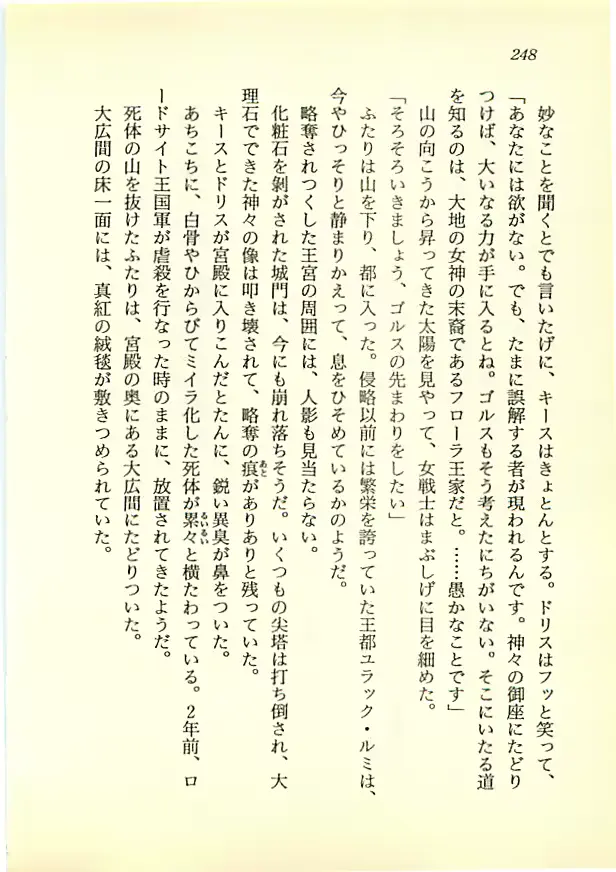 248
妙なことを聞くとでも言いたげに、キースはきょとんとする。ドリスはフッと笑って、
「あなたには欲がない。でも、たまに誤解する者が現われるんです。神々の御座にたどり
つけば、大いなる力が手に入るとね。ゴルスもそう考えたにちがいない。そこにいたる道
を知るのは、大地の女神の末裔であるフローラ王家だと。……愚かなことです」
山の向こうから昇ってきた太陽を見やって、女戦士はまぶしげに目を細めた。
「そろそろいきましょう、ゴルスの先まわりをしたい」
ふたりは山を下り、都に入った。侵略以前には繁栄を誇っていた王都ユラック・ルミは、
今やひっそりと静まりかえって、息をひそめているかのようだ。
略奪されつくした王宮の周囲には、人影も見当たらない。
化粧石を剝がされた城門は、今にも崩れ落ちそうだ。いくつもの尖塔は打ち倒され、大
理石でできた神々の像は叩き壊されて、略奪の痕があとありありと残っていた。
キースとドリスが宮殿に入りこんだとたんに、鋭い異臭が鼻をついた。
あちこちに、白骨やひからびてミイラ化した死体が累々るいるいと横たわっている。２年前、ロ
ードサイト王国軍が虐殺を行なった時のままに、放置されてきたようだ。
死体の山を抜けたふたりは、宮殿の奥にある大広間にたどりついた。
大広間の床一面には、真紅の絨毯が敷きつめられていた。